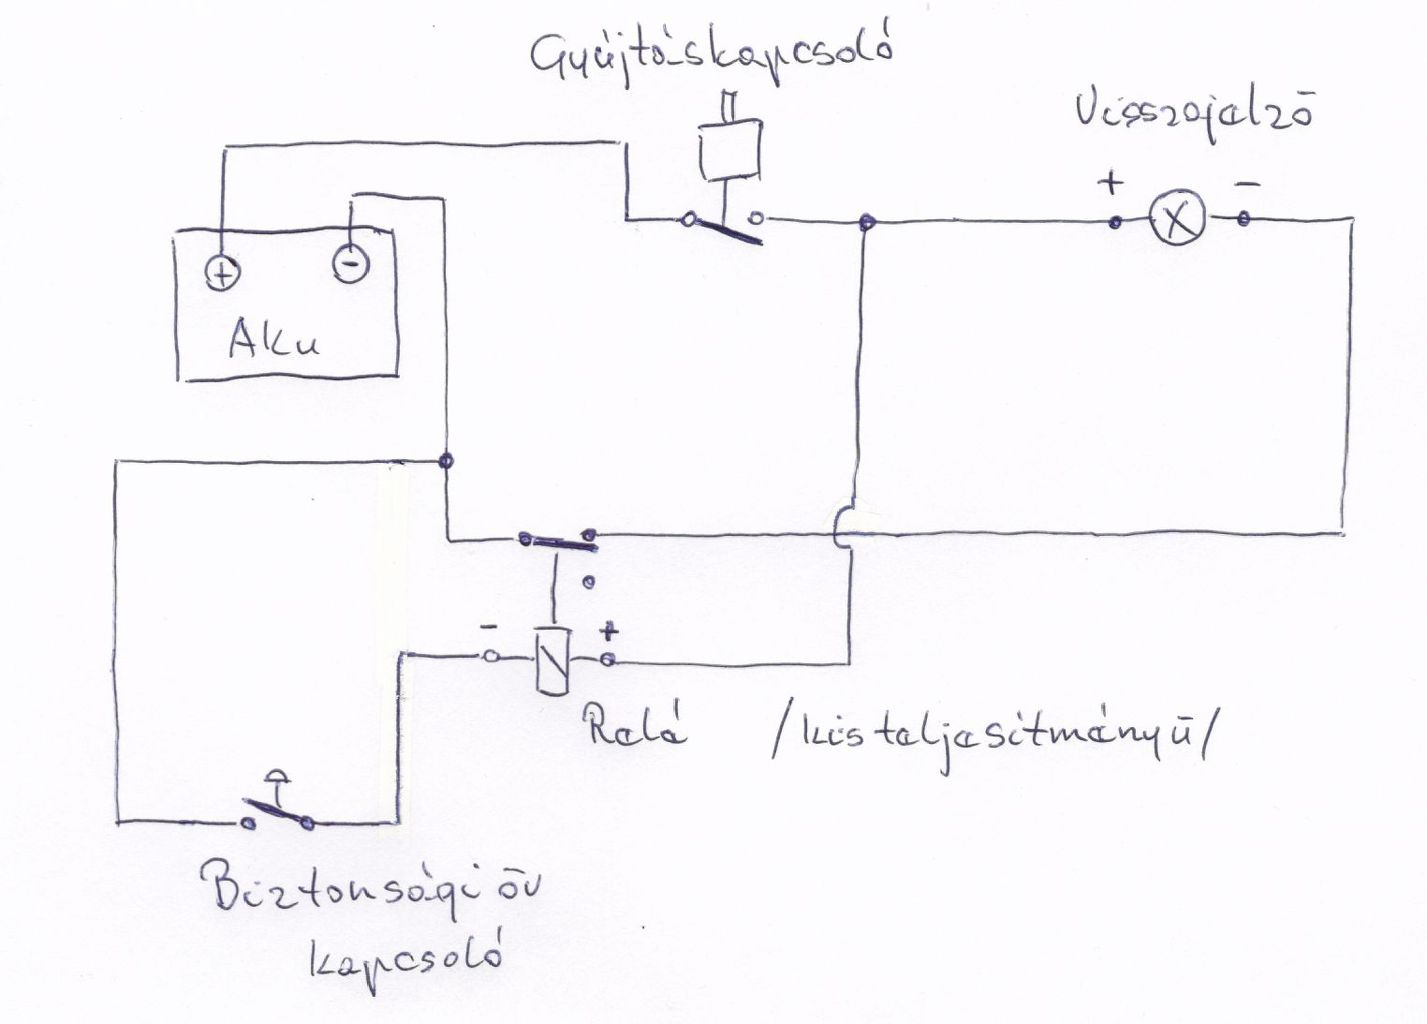 Gyújtáskapcsoló
Visszajelző
+ -
+ -
Aku
- +
Relé /kis teljesítményű/
Biztonsági öv
kapcsoló